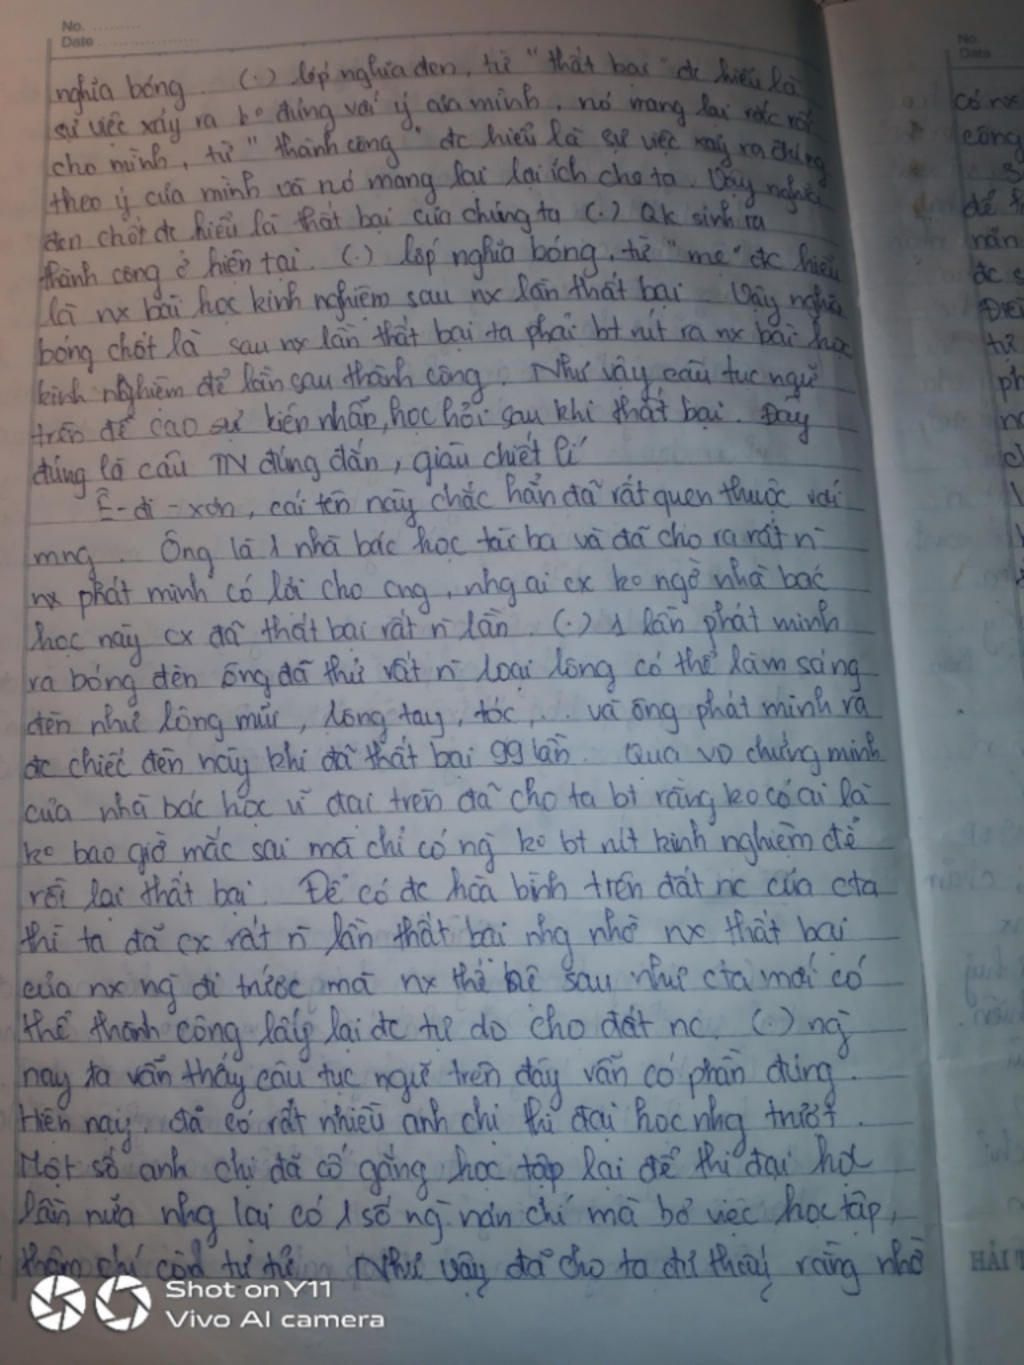 No. ..........
Date ....................
nghĩa bóng. (.) lớp nghĩa đen, từ "thất bại" đc hiểu là
sự việc xảy ra ko đúng với ý của mình, nó mang lại rắc rối
cho mình, từ "thành công" đc hiểu là sự việc xảy ra đúng
theo ý của mình và nó mang lại lợi ích cho ta. Vậy nghĩa
đen chốt đc hiểu là thất bại của chúng ta (.) Qk sinh ra
thành công ở hiện tại. (.) lớp nghĩa bóng, từ "mẹ" đc hiểu
là nx bài học kinh nghiệm sau nx lần thất bại. Vậy nghĩa
bóng chốt là sau nx lần thất bại ta phải bt rút ra nx bài học
kinh nghiệm để lần sau thành công. Như vậy, câu tục ngữ
trên đề cao sự kiên nhẫn, học hỏi sau khi thất bại. Đây
đúng là câu TN đúng đắn, giàu chiết lí
Ê-đi-xơn, cái tên này chắc hẳn đã rất quen thuộc với
mng. Ông là 1 nhà bác học tài ba và đã cho ra rất n̄
nx phát minh có lời cho cng, nhg ai cx ko ngờ nhà bác
học này cx đã thất bại rất n̄ lần. (.) 1 lần phát minh
ra bóng đèn ông đã thử rất n̄ loại lông có thể làm sáng
đèn như lông mũi, lông tay, tóc,... và ông phát minh ra
đc chiếc đèn này khi đã thất bại 99 lần. Qua VD chứng minh
của nhà bác học vĩ đại trên đã cho ta bt rằng ko có ai là
ko bao giờ mắc sai mà chỉ có ng̀ ko bt rút kinh nghiệm để
rồi lại thất bại. Để có đc hòa bình trên đất nc của cta
thì ta đã cx rất n̄ lần thất bại nhg nhờ nx thất bại
của nx ng̀ đi trước mà nx thế hệ sau như cta mới có
thể thành công lấy lại đc tự do cho đất nc. (.) ng̀
nay ta vẫn thấy câu tục ngữ trên đây vẫn có phần đúng.
Hiện nay, đã có rất nhiều anh chị thi đại học nhg trượt.
Một số anh chị đã cố gắng học tập lại để thi đại học
lần nữa nhg lại có 1 số ng̀ nản chí mà bỏ việc học tập,
thậm chí còn tự tử. Như vậy đã cho ta thấy rằng nhờ
No.
Date
có nx
công
để
nản
đc s
từ
ph
HẢI
Shot on Y11
Vivo AI camera